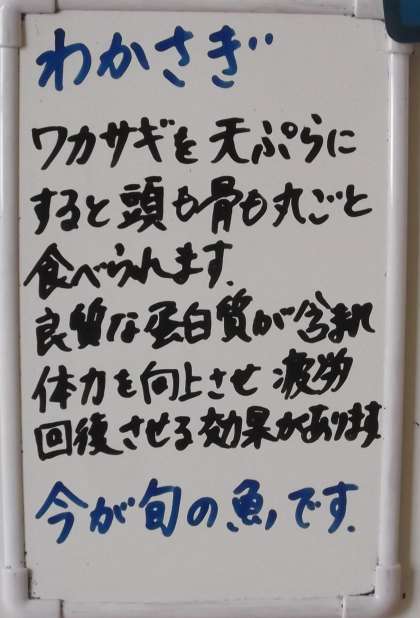 わかさぎ
ワカサギを天ぷらに
すると頭も骨も丸ごと
食べられます.
良質な蛋白質が含まれ
体力を向上させ疲労
回復させる効果があります
今が旬の魚,です.